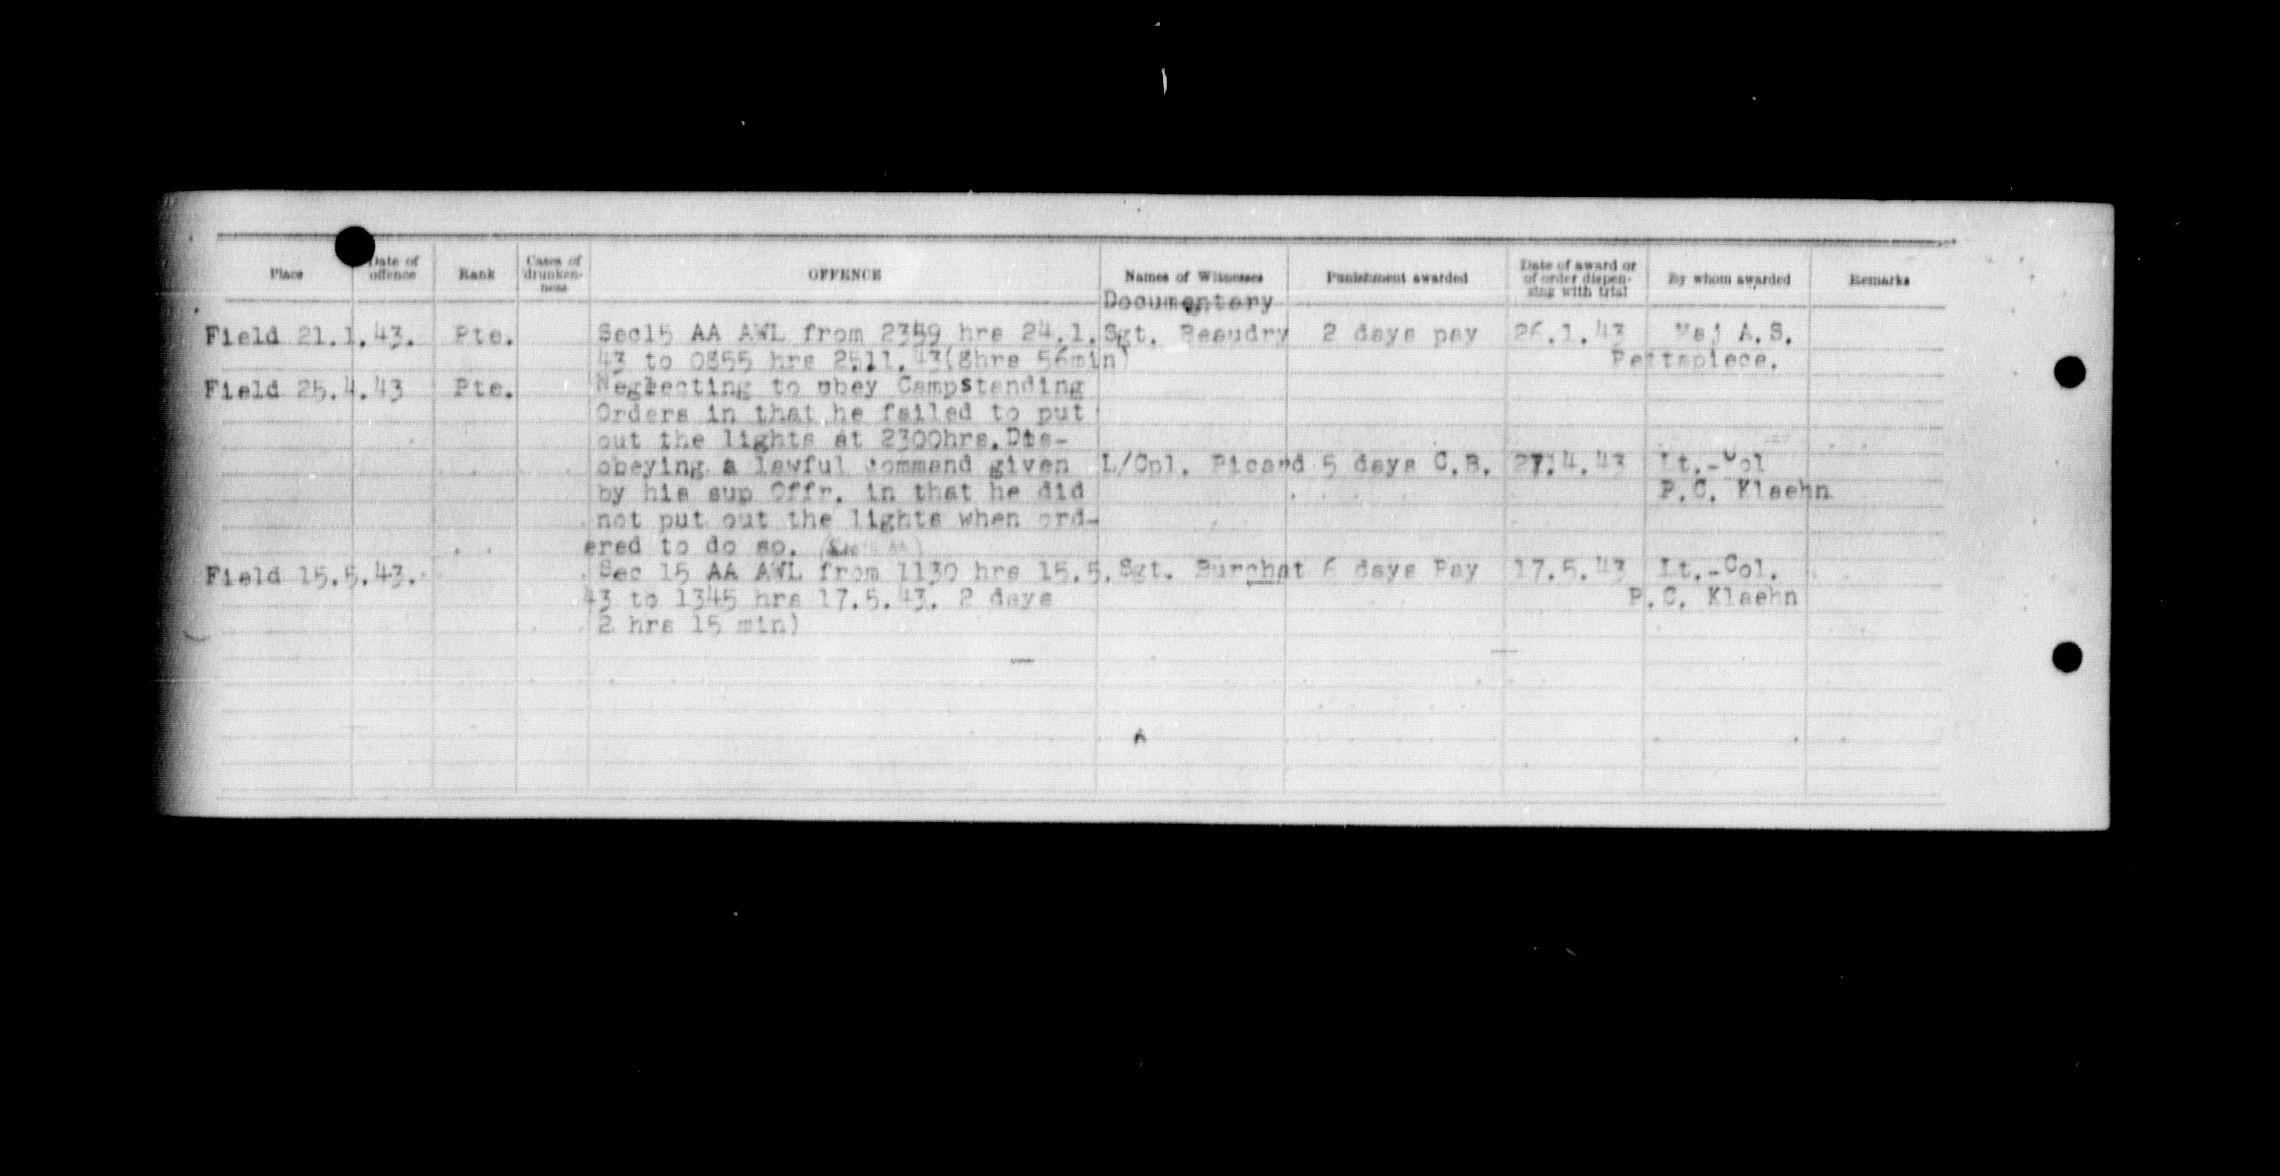 Place Date of offence Rank Cases of drunken-ness OFFENCE Names of Witnesses Punishment awarded Date of award or of order dispen-sing with trial By whom awarded Remarks
Documentary
Field 21.1.43. Pte. Sec15 AA AWL from 2359 hrs 24.1. Sgt. Beaudry 2 days pay 26.1.43 Maj A.S.
43 to 0855 hrs 25.1.43(8hrs 56min) Pettapiece.
Field 25.4.43 Pte. Neglecting to obey Campstanding
Orders in that he failed to put
out the lights at 2300hrs. Dis-
obeying a lawful command given L/Cpl. Picard 5 days C.B. 27.4.43 Lt.-Col
by his sup Offr. in that he did P.C. Klaehn
not put out the lights when ord-
ered to do so.
Field 15.5.43. Sec 15 AA AWL from 1130 hrs 15.5. Sgt. Burchat 6 days Pay 17.5.43 Lt.-Col.
43 to 1345 hrs 17.5.43. 2 days P.C. Klaehn
2 hrs 15 min)